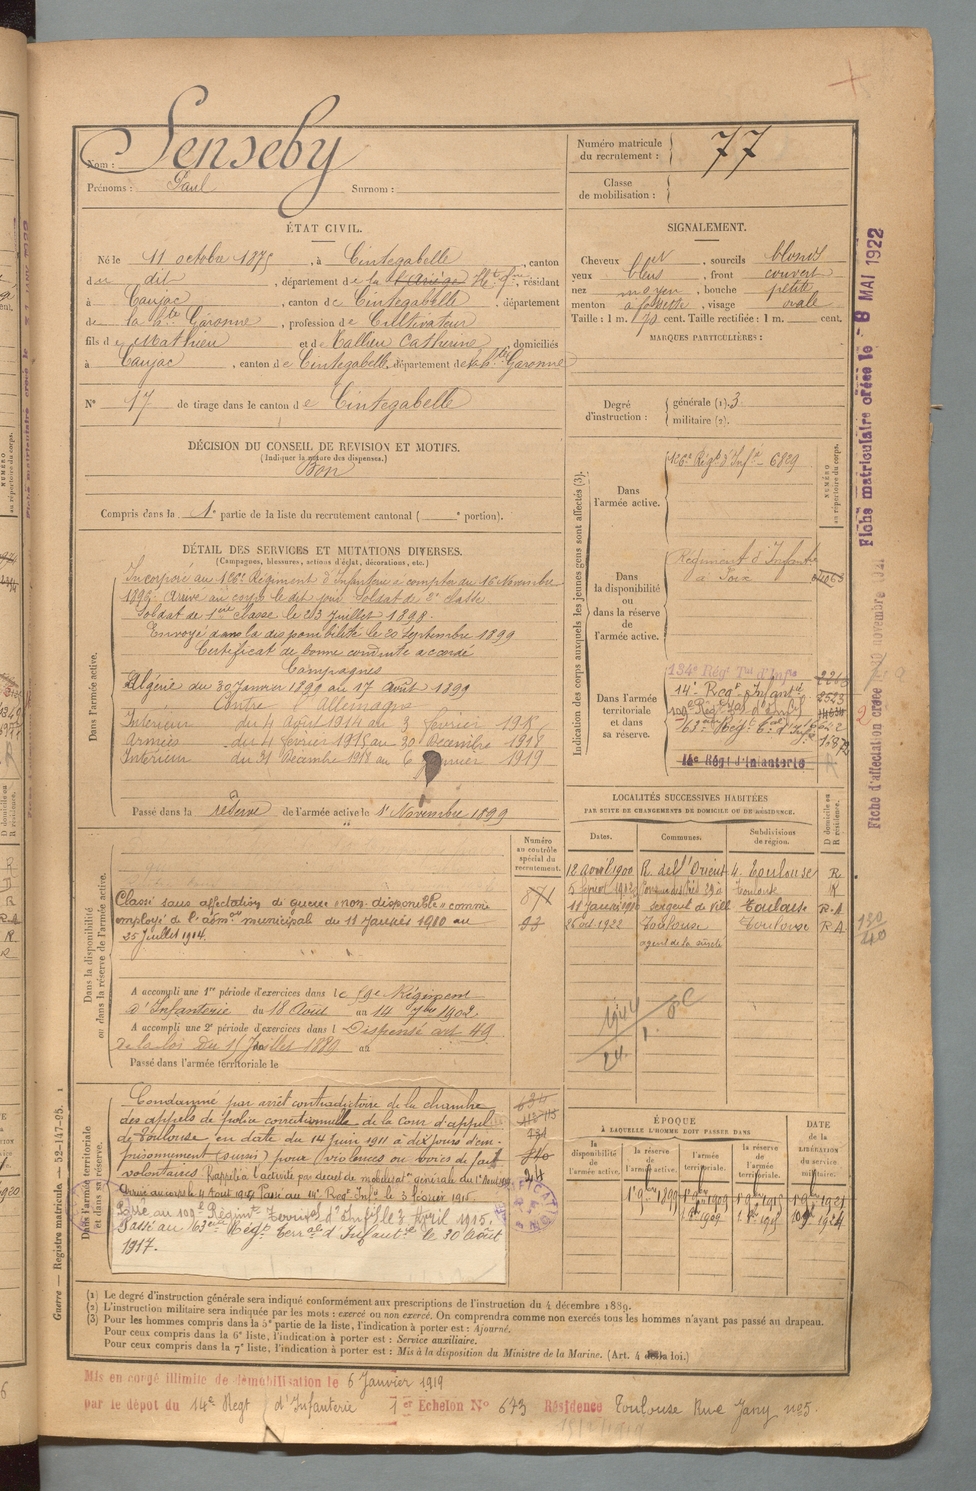 Nom : Senseby
Prénoms : Paul Surnom :
Numéro matricule du recrutement : 77
Classe de mobilisation :
ÉTAT CIVIL.
Né le 11 octobre 1875, à Cintegabelle, canton
du dit, département de la l'Ariège Hte Gne, résidant
à Caujac, canton de Cintegabelle, département
de la hte Garonne, profession de Cultivateur
fils de Mathieu et de Tallieu Catherine, domiciliés
à Caujac, canton de Cintegabelle, département de la hte Garonne
N° 17 de tirage dans le canton de Cintegabelle
SIGNALEMENT.
Cheveux et, sourcils blonds
yeux bleus, front couvert
nez moyen, bouche petite
menton à fossette, visage ovale
Taille : 1 m. 70 cent. Taille rectifiée : 1 m. cent.
MARQUES PARTICULIÈRES :
Degré d'instruction : générale (1). 3.
militaire (2).
DÉCISION DU CONSEIL DE REVISION ET MOTIFS.
(Indiquer la nature des dispenses.)
Bon
Compris dans la 1e partie de la liste du recrutement cantonal ( e portion).
DÉTAIL DES SERVICES ET MUTATIONS DIVERSES.
(Campagnes, blessures, actions d'éclat, décorations, etc.)
Dans l'armée active.
Incorporé au 126e Régiment d'Infanterie à compter du 16 Novembre
1896. Arrivé au corps le dit jour Soldat de 2e classe.
Soldat de 1ère Classe le 23 juillet 1898.
Envoyé dans la disponibilité le 20 Septembre 1899
Certificat de bonne conduite accordé
Campagnes
Algérie du 30 Janvier 1899 au 17 Août 1899
Contre l'Allemagne
Intérieur du 4 Août 1914 au 3 février 1915
Armées du 4 février 1915 au 30 Décembre 1918
Intérieur du 31 Décembre 1918 au 6 Janvier 1919
Passé dans la réserve de l'armée active le 1er Novembre 1899
Indication des corps auxquels les jeunes gens sont affectés (3).
NUMÉRO au répertoire du corps.
Dans l'armée active.
126e Régt d'Infie 6829
Dans la disponibilité ou dans la réserve de l'armée active.
Régiment d'Infanterie
à Foix
Dans l'armée territoriale et dans sa réserve.
134e Régt Tal d'Infie
14e Regt Infantie 2523
109e Régt Tal d'Infie
63ème Regt Tal d'Infie
14e Régt d'Infanterie
LOCALITÉS SUCCESSIVES HABITÉES
PAR SUITE DE CHANGEMENTS DE DOMICILE OU DE RÉSIDENCE.
Dates. Communes. Subdivisions de région. D domicile ou R résidence.
12 avril 1900 R. de l'Orient 4. Toulouse R
5 février 1902 Toulouse R
18 Janvier 1910 sergent de ville Toulouse R.A
26 oct 1922 Toulouse Toulouse RA
agent de la sûreté
Dans la disponibilité ou dans la réserve de l'armée active.
Numéro au contrôle spécial du recrutement.
Classé sans affectation de guerre «non disponible» comme
employé de l'admon municipale du 11 Janvier 1910 au
25 juillet 1914.
A accompli une 1re période d'exercices dans le 59e Régiment
d'Infanterie du 18 Août au 14 7bre 1902
A accompli une 2e période d'exercices dans l Dispensé art 49
de la loi du 15 Juillet 1889 au
Passé dans l'armée territoriale le
Dans l'armée territoriale et dans sa réserve.
Condamné par arrêt contradictoire de la chambre
des appels de police correctionnelle de la Cour d'appel
de Toulouse, en date du 14 juin 1911 à dix jours d'em-
prisonnement (sursis) pour violences ou voies de fait
volontaires Rappelé à l'activité par décret de mobilisation générale du 1er Août 1914
Arrivé au corps le 4 Août 1914 Passé au 14e Regt Infie le 3 février 1915.
Passé au 109e Régimt Territal d'Infie le 3 Avril 1915.
Passé au 63ème Régt Terral d'Infantie le 30 Août
1917.
ÉPOQUE
À LAQUELLE L'HOMME DOIT PASSER DANS
la disponibilité de l'armée active. la réserve de l'armée active. l'armée territoriale. la réserve de l'armée territoriale.
DATE de la LIBÉRATION du service militaire.
1er 9bre 1899 1er 9bre 1909 1er 9bre 1915 1er 9bre 1921
(1) Le degré d'instruction générale sera indiqué conformément aux prescriptions de l'instruction du 4 décembre 1889.
(2) L'instruction militaire sera indiquée par les mots : exercé ou non exercé. On comprendra comme non exercés tous les hommes n'ayant pas passé au drapeau.
(3) Pour les hommes compris dans la 5e partie de la liste, l'indication à porter est : Ajourné.
Pour ceux compris dans la 6e liste, l'indication à porter est : Service auxiliaire.
Pour ceux compris dans la 7e liste, l'indication à porter est : Mis à la disposition du Ministre de la Marine. (Art. 4 de la loi.)
Mis en congé illimité de démobilisation le 6 Janvier 1919
par le dépôt du 14e Regt d'Infanterie 1er Echelon N° 673 Résidence Toulouse Rue Jany n°5.
Guerre — Registre matricule. — 52-147-95.
Fiche matriculaire créée le 8 MAI 1922
Fiche d'affectation créée